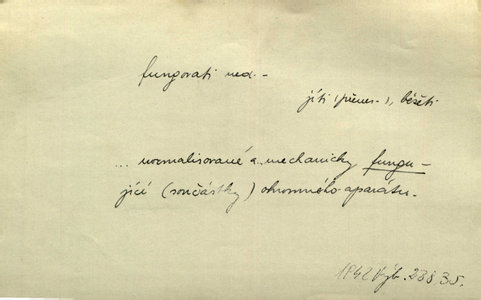 fungovati ned. -
jíti (přenes.), běžeti
... normalisované a mechanicky fungu-
jící (součástky) ohromného aparátu.
1942 Výb. 238.35.